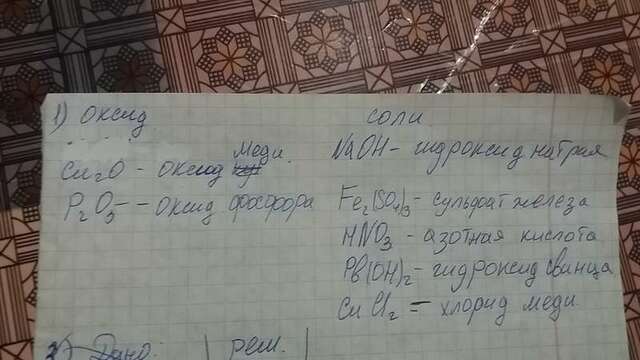 1) оксид
Cu₂O - оксид меди.
P₂O₃ - - Оксид фосфора
соли
NaOH - гидроксид натрия
Fe₂(SO₄)₃ - сульфат железа
HNO₃ - азотная кислота
Pb(OH)₂ - гидроксид свинца
CuCl₂ - хлорид меди
2) Дано: | реш. |